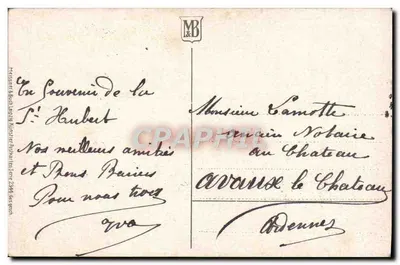 MB
En Souvenir de la
St Hubert
Nos meilleurs amitiés
et Bons Baisers
Pour nous trois
Yvo
Monsieur Lamotte
ancien Notaire
au Chateau
avaux le Chateau
Ardennes
CRAPHAL